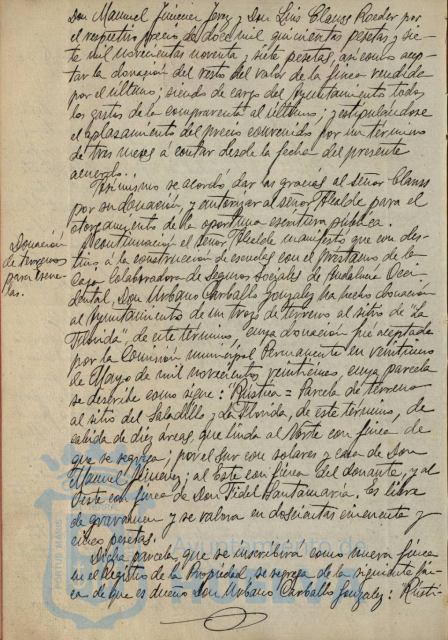 Don Manuel Jimenez Jerez y Don Luis Clauss Roeder por
el respectivo precio de doce mil quinientas pesetas y sie-
te mil novecientas noventa y siete pesetas, así como acep-
tar la donación del resto del valor de la finca vendida
por el último; siendo de cargo del Ayuntamiento todos
los gastos de la compraventa al último; y estipulándose
el aplazamiento del precio convenido por un término
de tres meses á contar desde la fecha del presente
acuerdo.
Asimismo se acordó dar las gracias al señor Clauss
por su donación y autorizar al señor Alcalde para el
otorgamiento de la oportuna escritura pública.
Donación
de terrenos
para escue-
las.
A continuación el señor Alcalde manifestó que con des-
tino a la construcción de escuelas con el préstamo de la
Caja Colaboradora de Seguros Sociales de Andalucía Occi-
dental, Don Urbano Carballo Gonzalez ha hecho donación
al Ayuntamiento de un trozo de terreno al sitio de "La
Florida", de este término, cuya donación fué aceptada
por la Comisión municipal Permanente en veintiuno
de Mayo de mil novecientos veintinueve, cuya parcela
se describe como sigue: "Rústica = Parcela de terreno
al sitio del Saladillo y La Florida, de este término, de
cabida de diez areas, que linda al Norte con finca de
que se segrega; por el Sur con solares y casa de Don
Manuel Jimenez; al Este con finca del donante, y al
Oeste con finca de Don Fidel Santamaría. Es libre
de gravamen y se valora en doscientas cincuenta y
cinco pesetas.
Dicha parcela, que se inscribirá como nueva finca
en el Registro de la Propiedad, se segrega de la siguiente fin-
ca de que es dueño Don Urbano Carballo Gonzalez: Rústi-
Ayuntamiento de